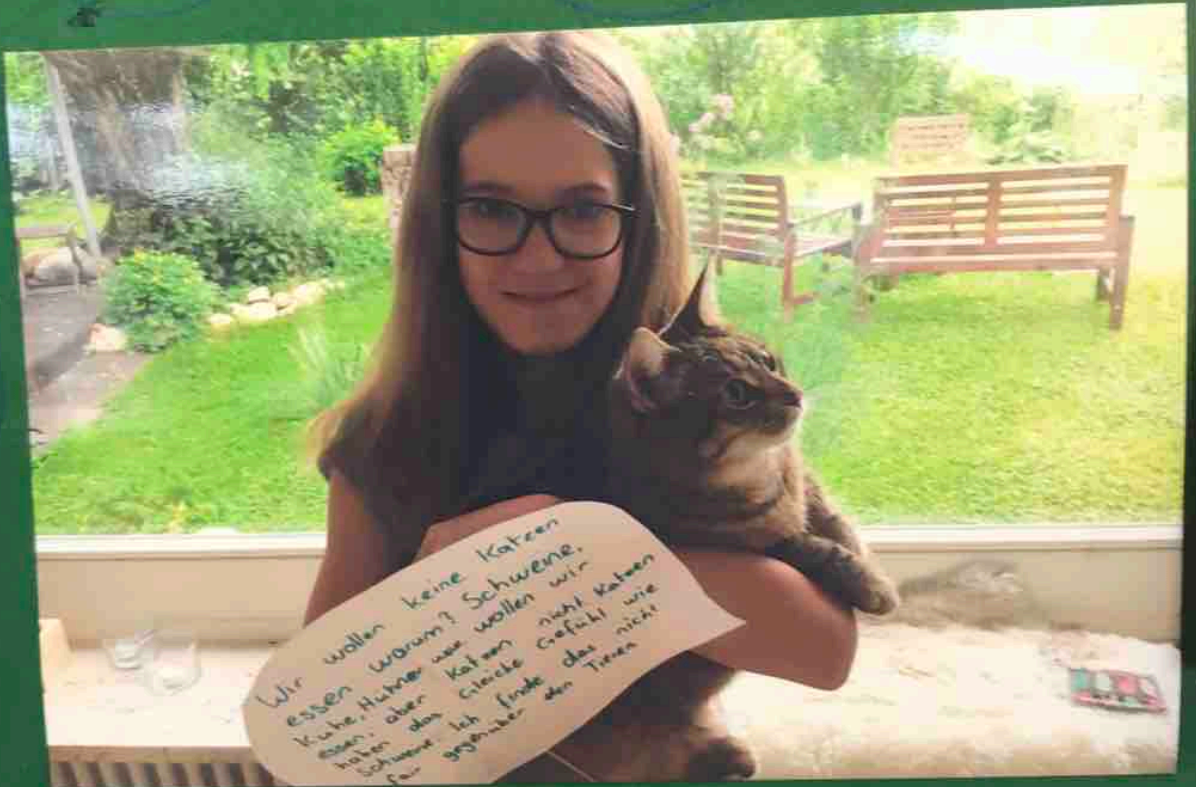 Wir wollen keine Katzen
essen warum? Schweine,
Kühe, Hühner usw wollen wir
essen, aber Katzen nicht. Katzen
haben das Gleiche Gefühl wie
Schweine. Ich finde das nicht
fair gegenüber den Tieren